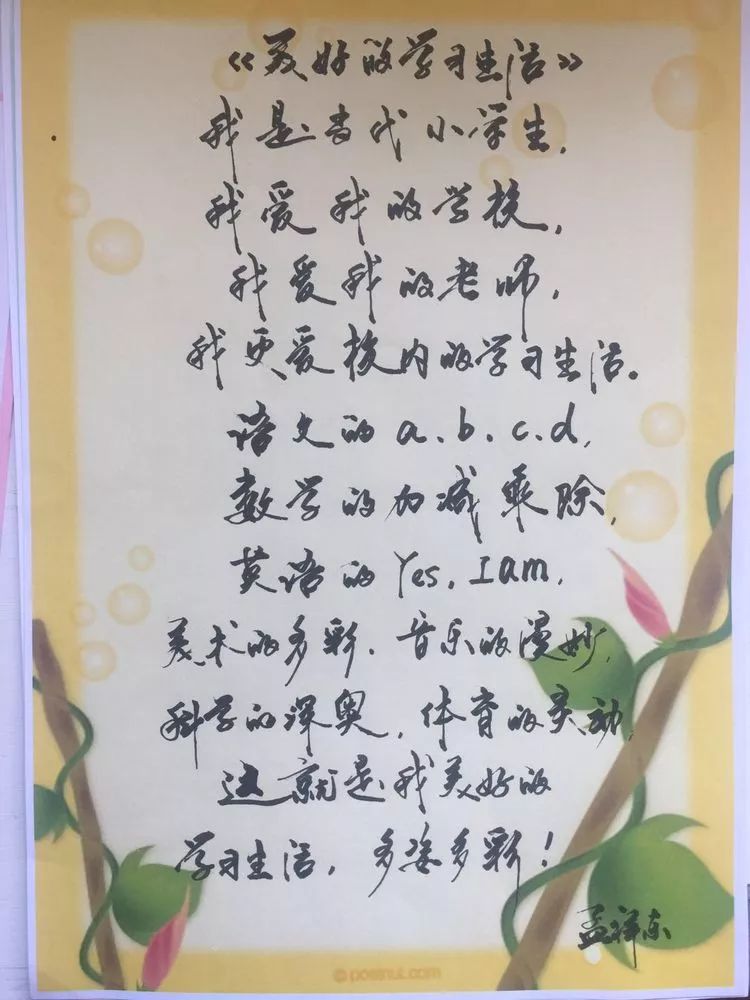 《美好的学习生活》
我是当代小学生,
我爱我的学校,
我爱我的老师,
我更爱校内的学习生活。
语文的a、b、c、d,
数学的加减乘除,
英语的Yes, I am,
美术的多彩、音乐的漫妙,
科学的深奥,体育的灵动,
这就是我美好的
学习生活,多姿多彩!
孟祥东